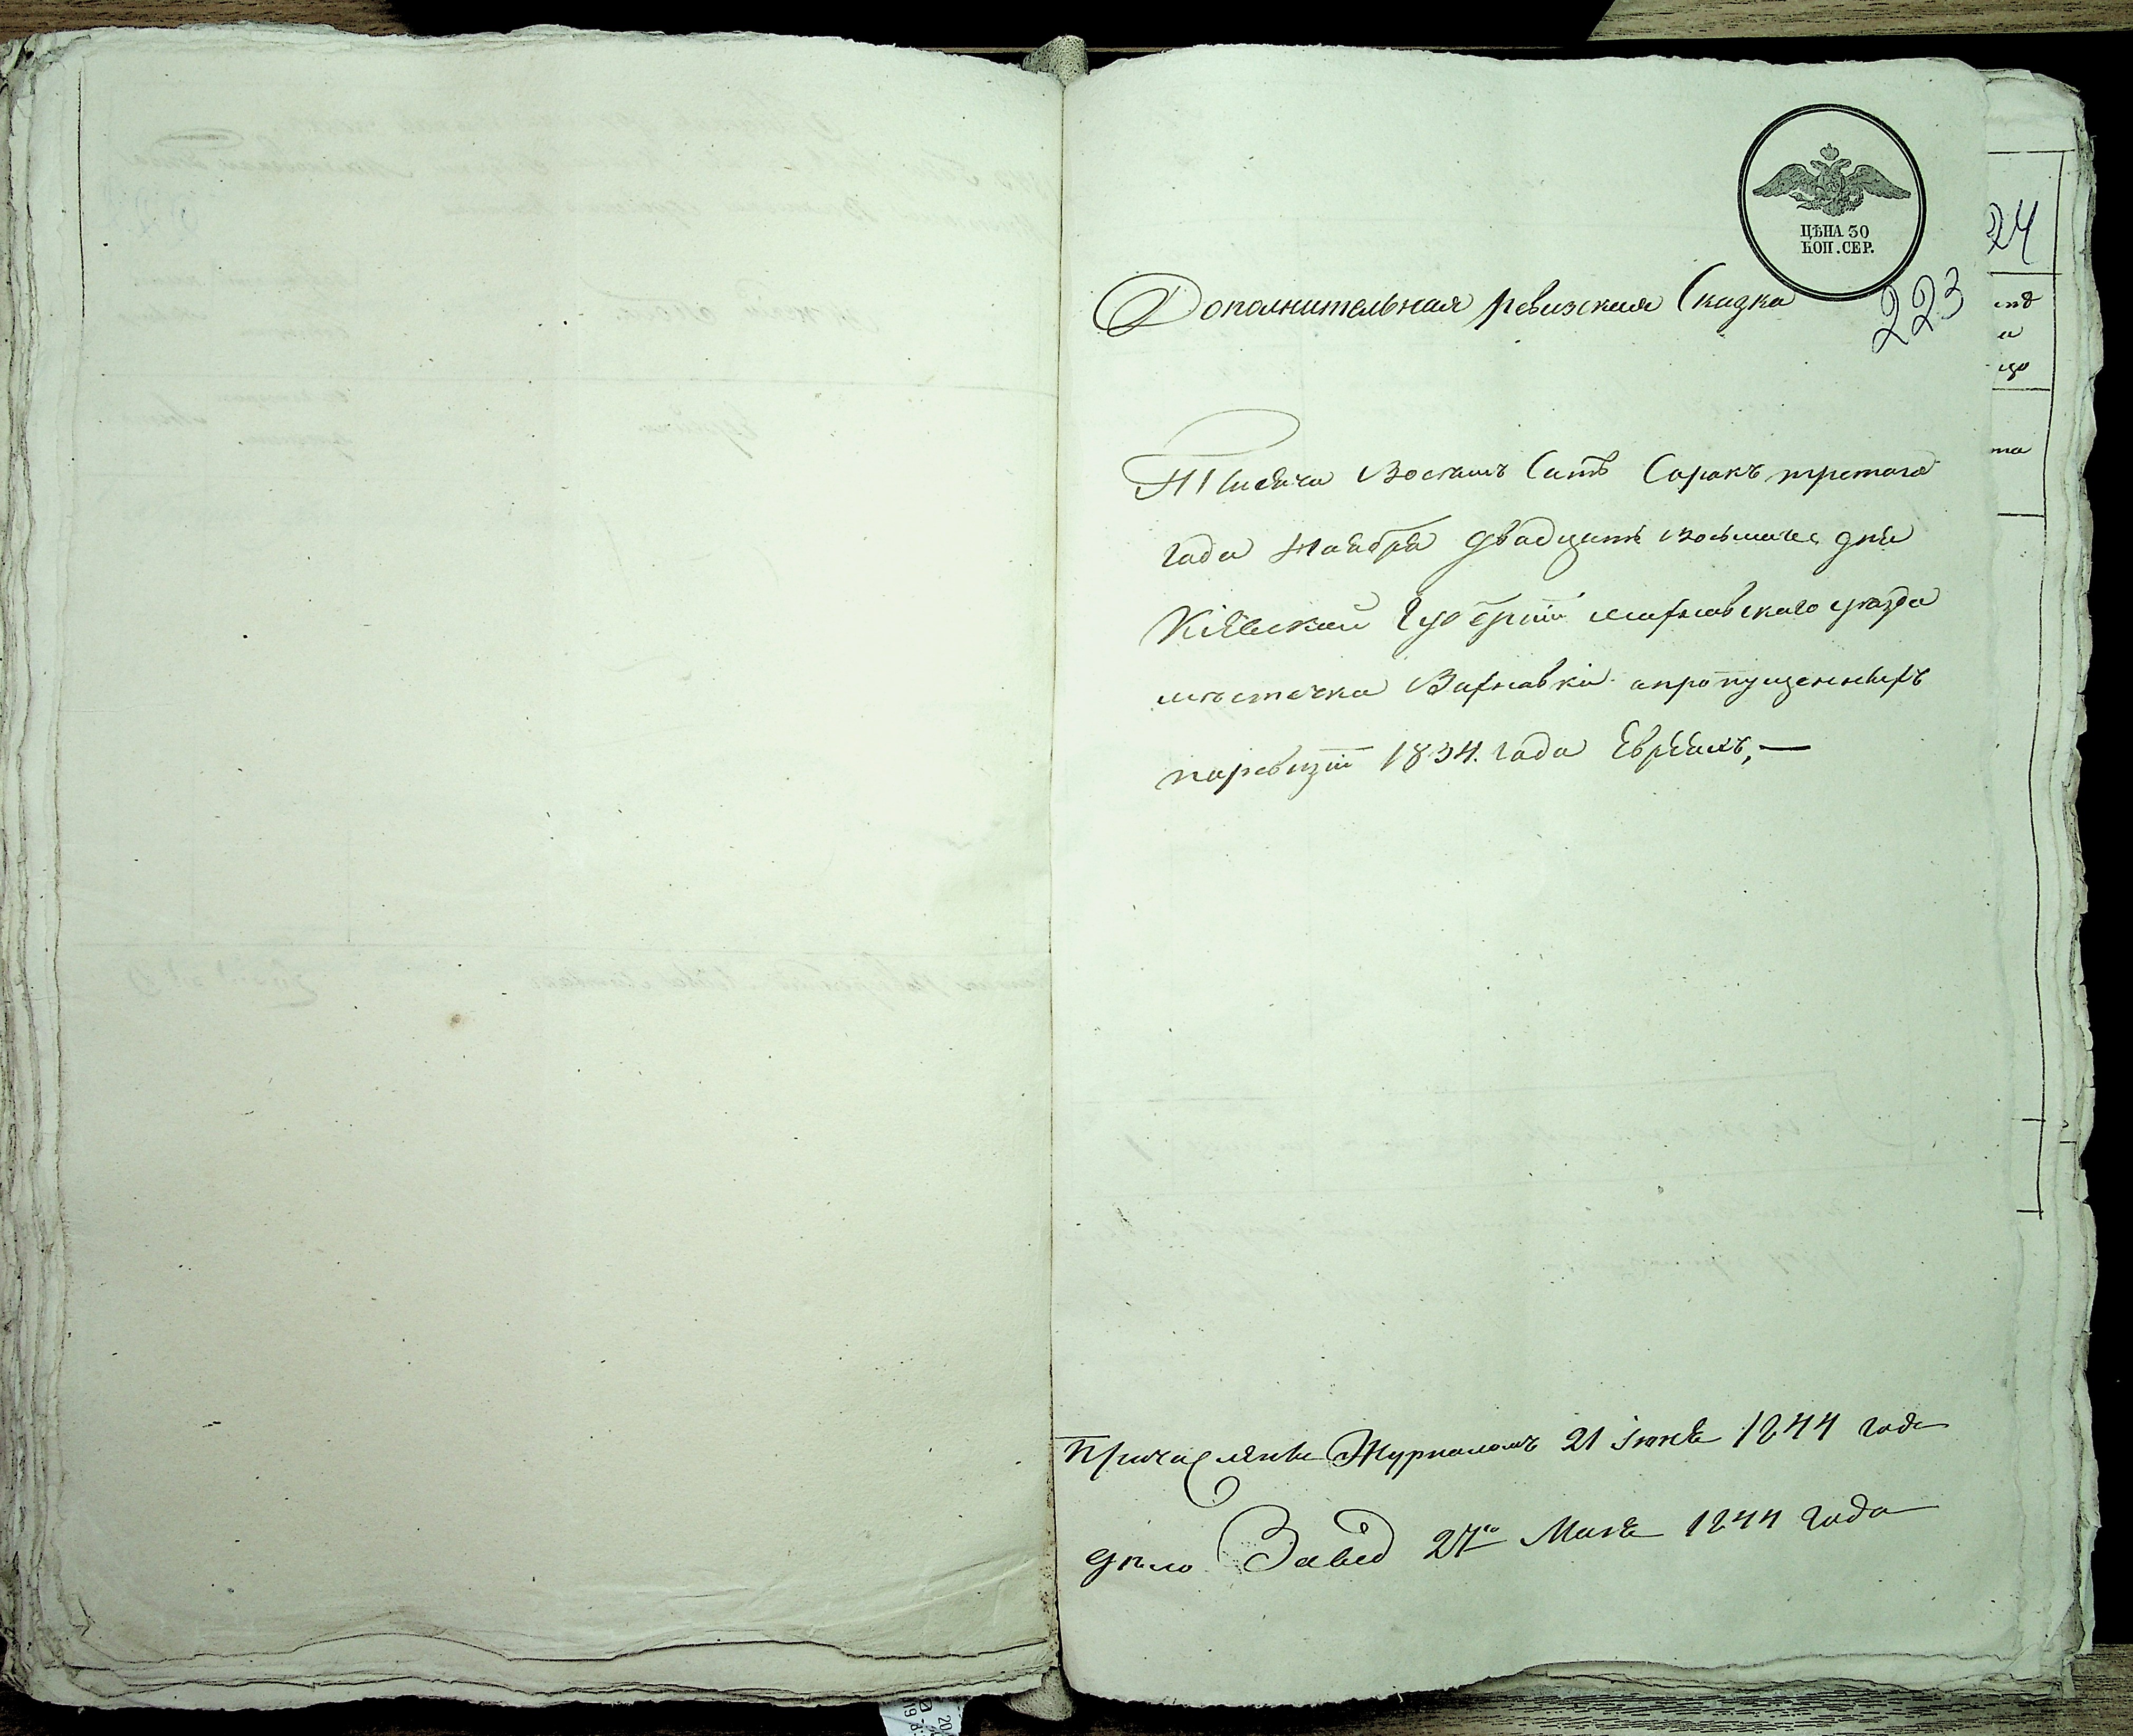 ЦѢНА 30
КОП. СЕР.
24
223
Дополнительная ревизская Сказка
Тысяча Восемъ Сотъ Сорокъ третого
года Ноября двадцать восьмаго дня
Кіевской Губерніи Махновскаго уѣзда
мѣстечка Вахновки опропущенныхъ
поревизіи 1834. года Евреяхъ, —
Причислены Журналомъ 21 Іюня 1844 года
дѣло Завед 27го Мая 1844 года